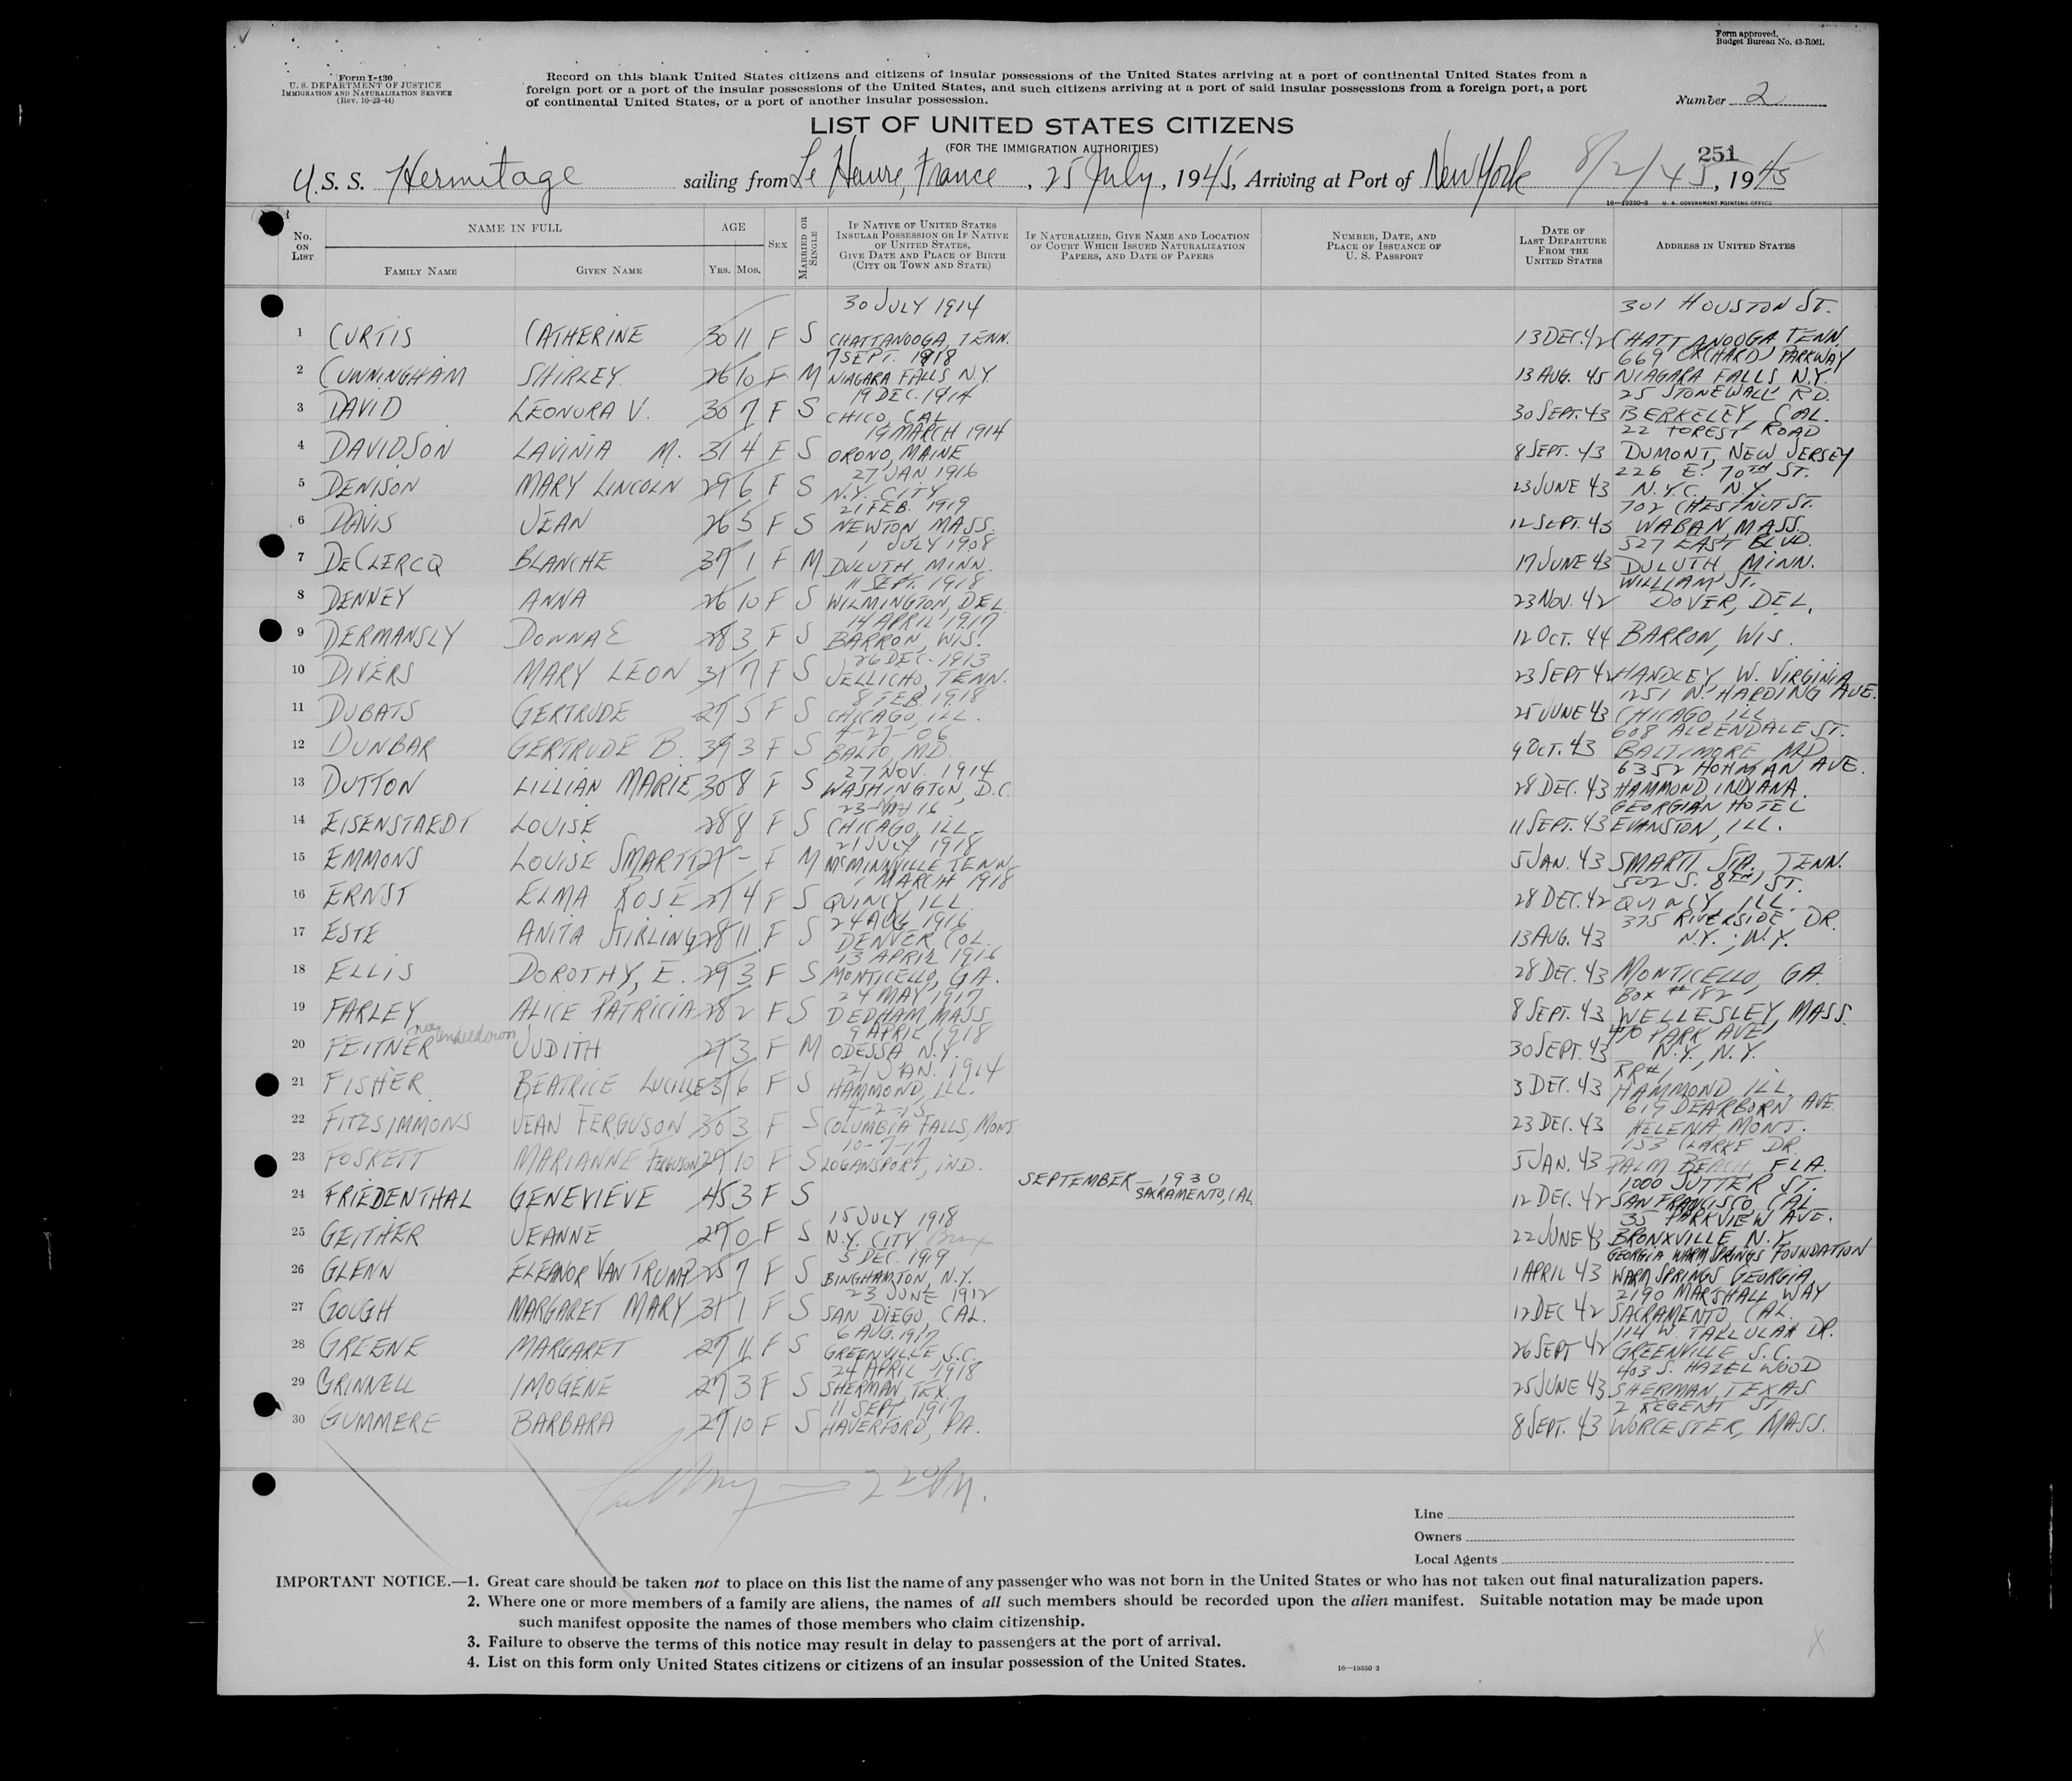 Form approved.
Budget Bureau No. 43-R061.
Form I-130
U. S. DEPARTMENT OF JUSTICE
IMMIGRATION AND NATURALIZATION SERVICE
(Rev. 10-23-44)
Record on this blank United States citizens and citizens of insular possessions of the United States arriving at a port of continental United States from a
foreign port or a port of the insular possessions of the United States, and such citizens arriving at a port of said insular possessions from a foreign port, a port
of continental United States, or a port of another insular possession.
Number 2
LIST OF UNITED STATES CITIZENS
(FOR THE IMMIGRATION AUTHORITIES)
251
U. S. S. Hermitage sailing from Le Havre, France, 25 July, 1945, Arriving at Port of New York 8/2/45, 1945
16—19350-3 U. S. GOVERNMENT PRINTING OFFICE
No. ON LIST
NAME IN FULL
FAMILY NAME GIVEN NAME
AGE
YRS. MOS.
SEX
MARRIED OR SINGLE
IF NATIVE OF UNITED STATES INSULAR POSSESSION OR IF NATIVE OF UNITED STATES, GIVE DATE AND PLACE OF BIRTH (CITY OR TOWN AND STATE)
IF NATURALIZED, GIVE NAME AND LOCATION OF COURT WHICH ISSUED NATURALIZATION PAPERS, AND DATE OF PAPERS
NUMBER, DATE, AND PLACE OF ISSUANCE OF U. S. PASSPORT
DATE OF LAST DEPARTURE FROM THE UNITED STATES
ADDRESS IN UNITED STATES
30 JULY 1914 301 HOUSTON ST.
1 CURTIS CATHERINE 30 11 F S CHATTANOOGA, TENN. 13 DEC. 42 CHATTANOOGA TENN.
7 SEPT. 1918 669 ORCHARD PARKWAY
2 CUNNINGHAM SHIRLEY 26 10 F M NIAGARA FALLS N.Y. 13 AUG. 45 NIAGARA FALLS, N.Y.
19 DEC. 1914 25 STONEWALL RD.
3 DAVID LEONORA V. 30 7 F S CHICO, CAL 30 SEPT. 43 BERKELEY, CAL.
19 MARCH 1914 22 FOREST ROAD
4 DAVIDSON LAVINIA M. 31 4 F S ORONO, MAINE 8 SEPT. 43 DUMONT, NEW JERSEY
27 JAN. 1916 226 E. 70TH ST.
5 DENISON MARY LINCOLN 29 6 F S N.Y. CITY 23 JUNE 43 N.Y.C. N.Y.
21 FEB. 1919 702 CHESTNUT ST.
6 DAVIS JEAN 26 5 F S NEWTON MASS. 12 SEPT. 43 WABAN, MASS.
1 JULY 1908 527 EAST BLVD.
7 DECLERCQ BLANCHE 37 1 F M DULUTH, MINN. 17 JUNE 43 DULUTH, MINN.
11 SEPT. 1918 WILLIAM ST.
8 DENNEY ANNA 26 10 F S WILMINGTON, DEL. 23 NOV. 42 DOVER, DEL.
14 APRIL 1917
9 DERMANSLY DONNA E 28 3 F S BARRON, WIS. 12 OCT. 44 BARRON, WIS.
26 DEC. 1913
10 DIVERS MARY LEON 31 7 F S JELLICHO, TENN. 23 SEPT 42 HANDLEY W. VIRGINIA
8 FEB. 1918 1251 N. HARDING AVE.
11 DUBATS GERTRUDE 27 5 F S CHICAGO, ILL. 25 JUNE 43 CHICAGO, ILL.
4-27-06 608 ALLENDALE ST.
12 DUNBAR GERTRUDE B. 39 3 F S BALTO, MD. 9 OCT. 43 BALTIMORE MD.
27 NOV. 1914 6352 HOHMAN AVE.
13 DUTTON LILLIAN MARIE 30 8 F S WASHINGTON, D.C. 28 DEC. 43 HAMMOND INDIANA.
GEORGIAN HOTEL
14 EISENSTAEDT LOUISE 28 8 F S CHICAGO, ILL. 11 SEPT. 43 EVANSTON, ILL.
21 JULY 1918
15 EMMONS LOUISE SMARTT 27 - F M McMINNVILLE TENN. 5 JAN. 43 SMARTT STA. TENN.
1 MARCH 1918 502 S. 8TH ST.
16 ERNST ELMA ROSE 27 4 F S QUINCY ILL. 28 DEC. 42 QUINCY, ILL.
24 AUG 1916 375 RIVERSIDE DR.
17 ESTE ANITA STIRLING 28 11 F S DENVER COL. 13 AUG. 43 N.Y. ; N.Y.
13 APRIL 1916
18 ELLIS DOROTHY, E. 29 3 F S MONTICELLO, GA. 28 DEC. 43 MONTICELLO, GA.
24 MAY 1917 BOX #182
19 FARLEY ALICE PATRICIA 28 2 F S DEDHAM, MASS 8 SEPT. 43 WELLESLEY, MASS.
nee 9 APRIL 1918 470 PARK AVE.
20 FEITNER JUDITH 27 3 F M ODESSA N.Y. 30 SEPT. 43 N.Y., N.Y.
21 JAN. 1914 RR#1
21 FISHER BEATRICE LUCILLE 31 6 F S HAMMOND, ILL. 3 DEC. 43 HAMMOND ILL.
4-2-15 619 DEARBORN AVE.
22 FITZSIMMONS JEAN FERGUSON 30 3 F S COLUMBIA FALLS, MONT 23 DEC. 43 HELENA MONT.
153 CLARKE DR.
23 FOSKETT MARIANNE FERGUSON 29 10 F S LOGANSPORT, IND. 5 JAN. 43 PALM BEACH, FLA.
SEPTEMBER — 1930 1000 SUTTER ST.
24 FRIEDENTHAL GENEVIEVE 45 3 F S SACRAMENTO, CAL 12 DEC. 42 SAN FRANCISCO, CAL
15 JULY 1918 35 PARKVIEW AVE.
25 GEITHER JEANNE 27 0 F S N.Y. CITY Bronx 22 JUNE 43 BRONXVILLE N.Y.
5 DEC. 1919 GEORGIA WARM SPRINGS FOUNDATION
26 GLENN ELEANOR VAN TRUMP 25 7 F S BINGHAMTON, N.Y. 1 APRIL 43 WARM SPRINGS GEORGIA
23 JUNE 1912 2190 MARSHALL WAY
27 GOUGH MARGARET MARY 31 1 F S SAN DIEGO, CAL. 12 DEC 42 SACRAMENTO, CAL.
6 AUG. 1917 114 W. TALLULAH DR.
28 GREENE MARGARET 27 11 F S GREENVILLE S.C. 26 SEPT 42 GREENVILLE S.C.
24 APRIL 1918 403 S. HAZELWOOD
29 GRINNELL IMOGENE 27 3 F S SHERMAN, TEX. 25 JUNE 43 SHERMAN, TEXAS
11 SEPT 1917 2 REGENT ST
30 GUMMERE BARBARA 27 10 F S HAVERFORD, PA. 8 SEPT. 43 WORCESTER, MASS.
Line
Owners
Local Agents
IMPORTANT NOTICE.—1. Great care should be taken not to place on this list the name of any passenger who was not born in the United States or who has not taken out final naturalization papers.
2. Where one or more members of a family are aliens, the names of all such members should be recorded upon the alien manifest. Suitable notation may be made upon
such manifest opposite the names of those members who claim citizenship.
3. Failure to observe the terms of this notice may result in delay to passengers at the port of arrival.
4. List on this form only United States citizens or citizens of an insular possession of the United States.
16—19350-2